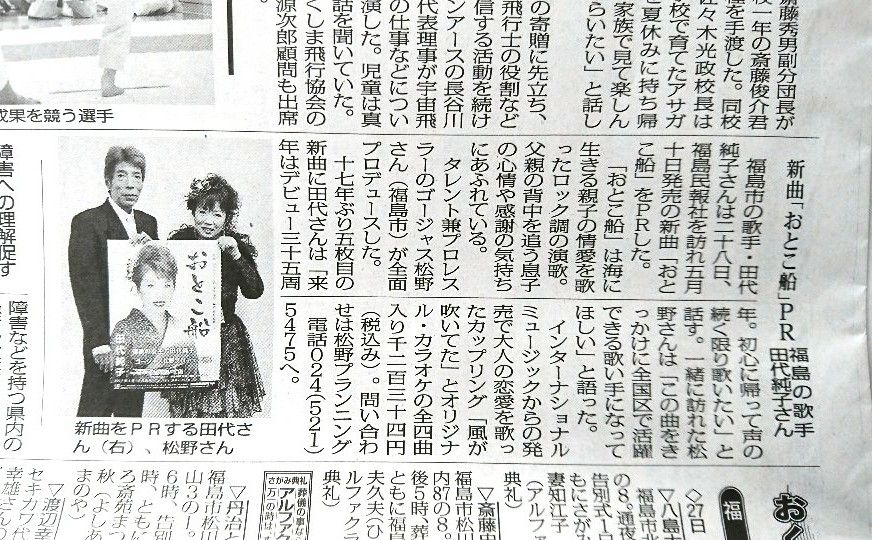 斎藤秀男副分団長が
校一年の斎藤俊介君
を手渡した。同校
佐々木光政校長は
校で育てたアサガ
を夏休みに持ち帰
家族で見て楽しん
らいたい」と話し
の寄贈に先立ち、
飛行士の役割など
信する活動を続け
ンアースの長谷川
代表理事が宇宙飛
の仕事などについ
演した。児童は真
話を聞いていた。
くしま飛行協会の
源次郎顧問も出席
成果を競う選手
新曲「おとこ船」PR
福島の歌手
田代純子さん
福島市の歌手・田代
純子さんは二十八日、
福島民報社を訪れ五月
十日発売の新曲「おと
こ船」をPRした。
「おとこ船」は海に
生きる親子の情愛を歌
ったロック調の演歌。
父親の背中を追う息子
の心情や感謝の気持ち
にあふれている。
タレント兼プロレス
ラーのゴージャス松野
さん（福島市）が全面
プロデュースした。
十七年ぶり五枚目の
新曲に田代さんは「来
年はデビュー三十五周
年。初心に帰って声の
続く限り歌いたい」と
話す。一緒に訪れた松
野さんは「この曲をき
っかけに全国区で活躍
できる歌い手になって
ほしい」と語った。
インターナショナル
ミュージックからの発
売で大人の恋愛を歌っ
たカップリング「風が
吹いてた」とオリジナ
ル・カラオケの全四曲
入り千二百三十四円
（税込み）。問い合わ
せは松野プランニング
電話024（521）
5475へ。
おとこ船
新曲をPRする田代さ
ん（右）、松野さん
障害への理解促す
障害などを持つ県内の
おく
福
◇27日
▽八島
福島市北
の8。通夜
告別式1日
もにさがみ
妻知江子
（アルファ
典礼）
▽斎藤
福島市松川
内87の8。
後5時、葬
ともに福島
夫久夫（ひ
ルファクラ
典礼）
さがみ典礼
葬儀の事なら
アルファク
▽丹治と
福島市松川
山3の1。
6時、告別
時、ともに
ろ斎苑まつ
秋（よしあ
まのや）
▽渡辺幸
セキカワ代
幸雄さんの